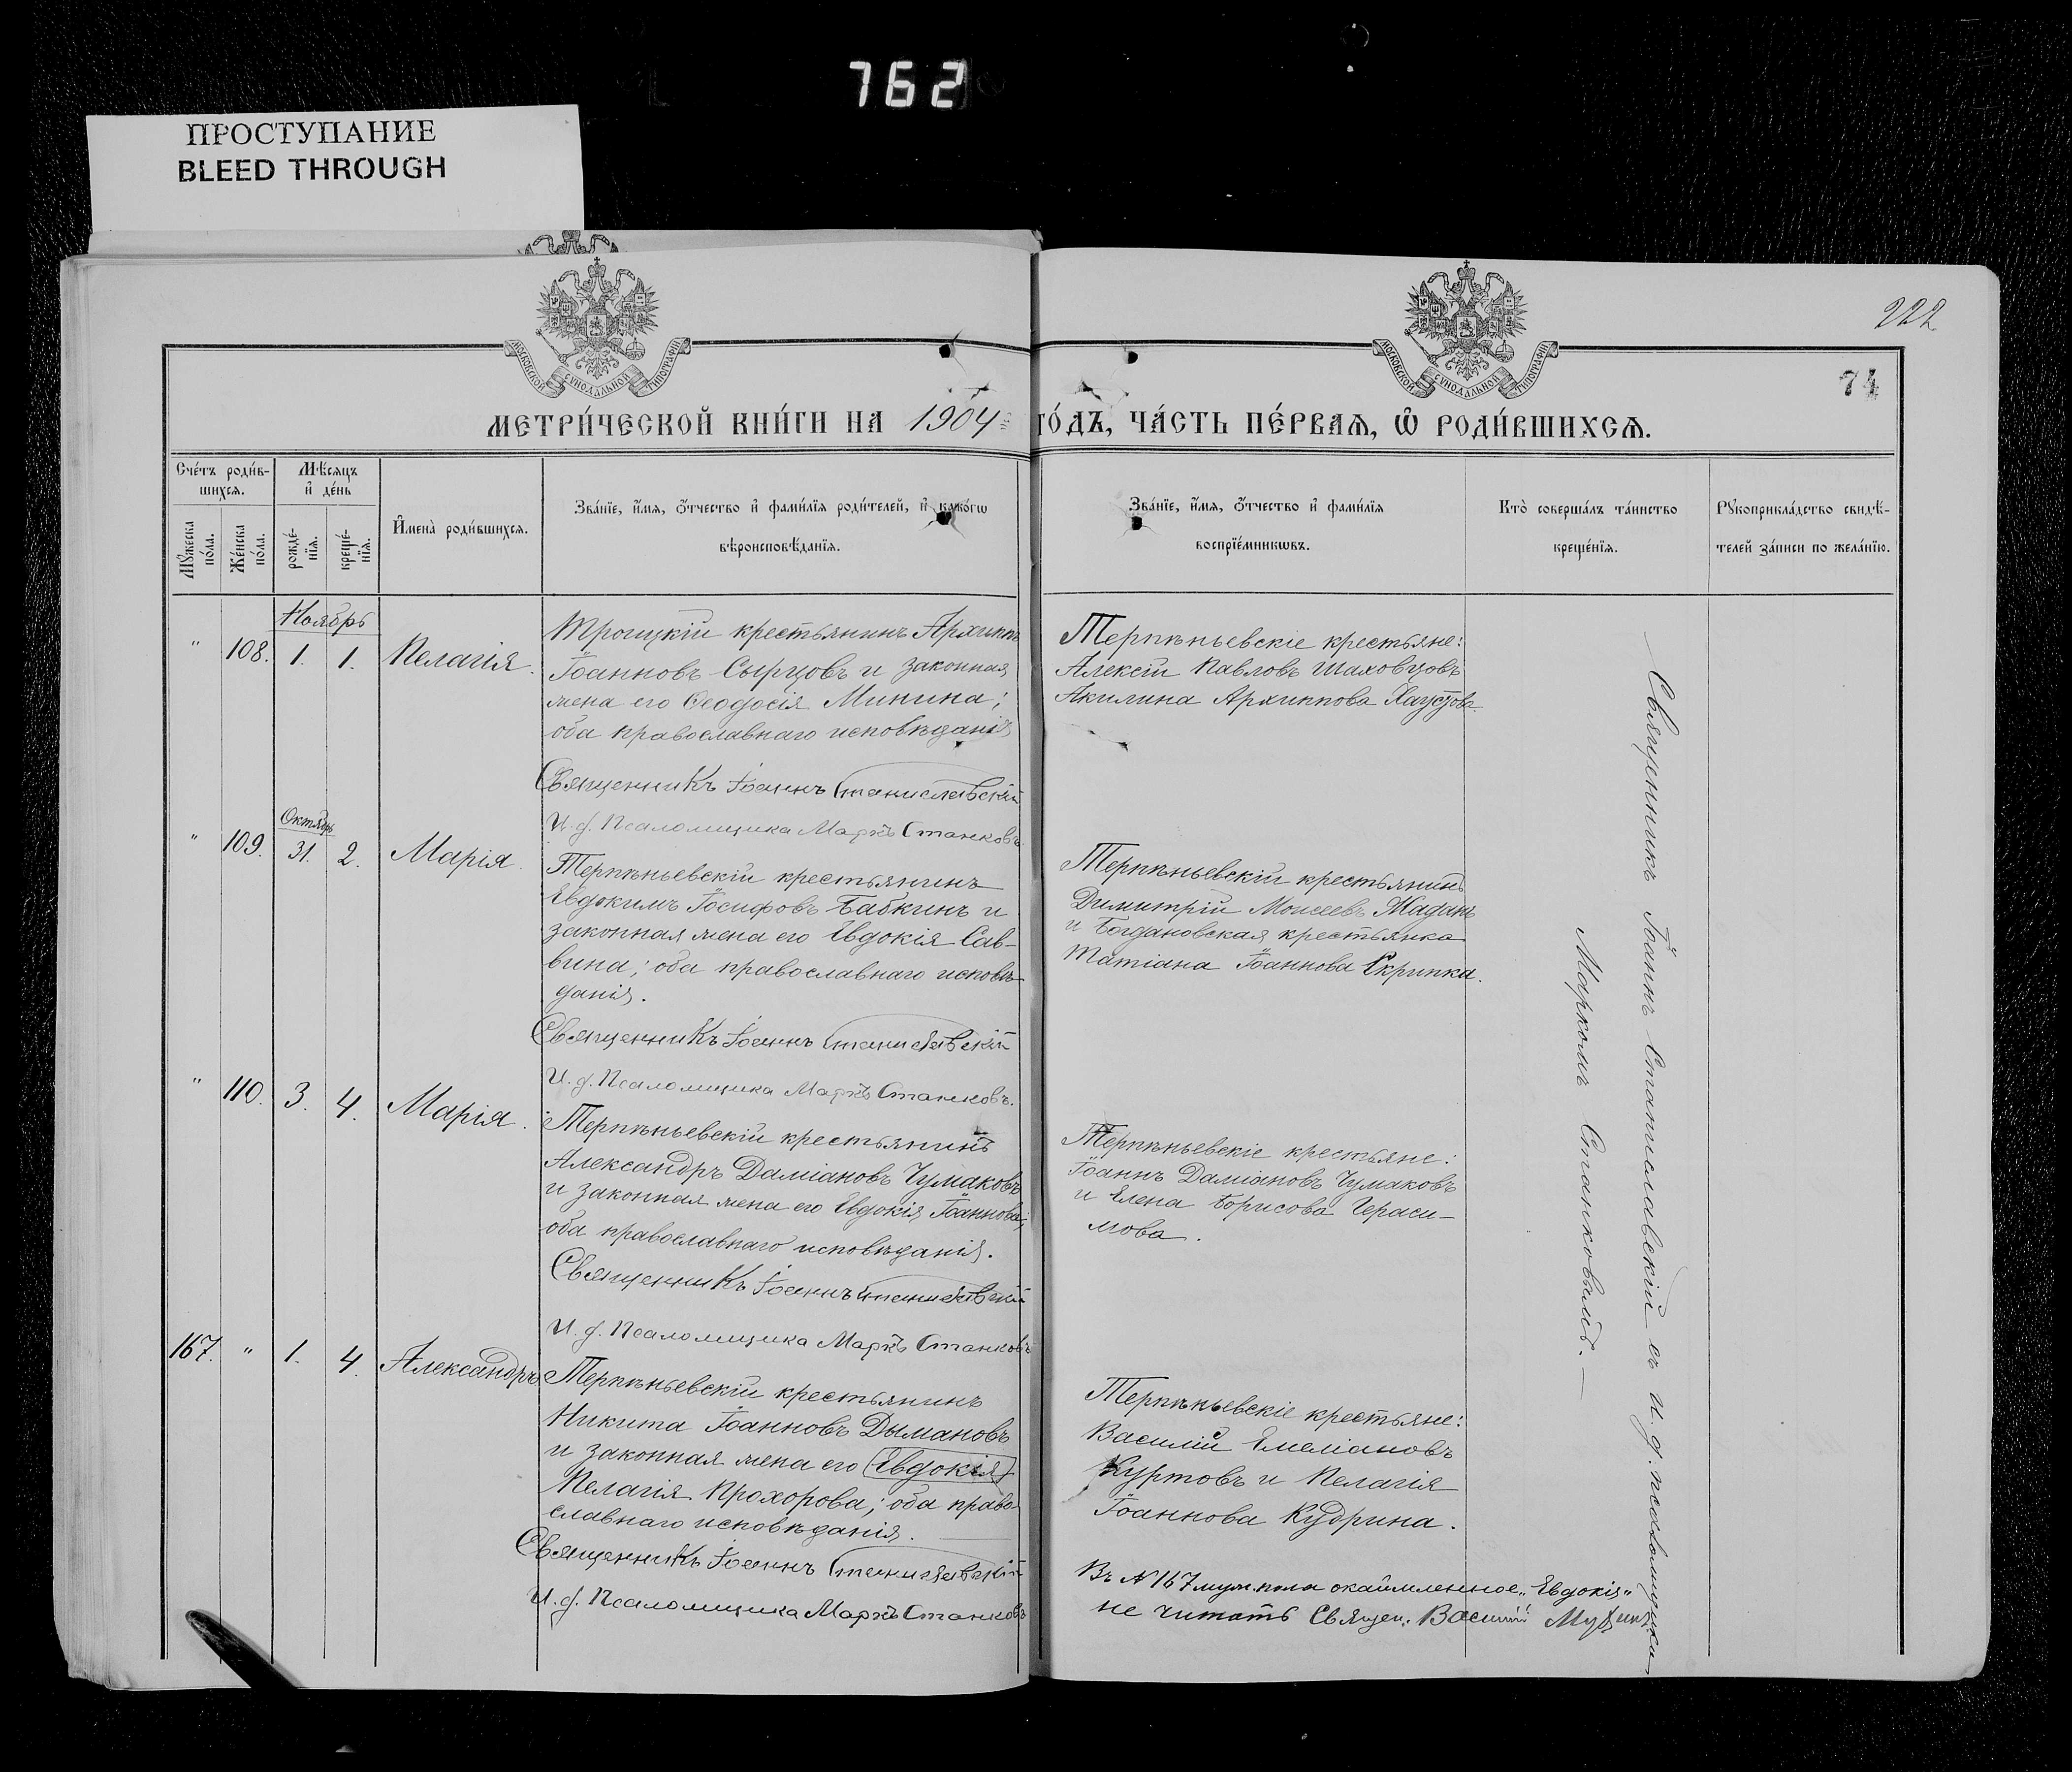 762
ПРОСТУПАНИЕ
BLEED THROUGH
222
74
МОСКОВСКОЙ СѴНОДАЛЬНОЙ ТИПОГРАФІИ
МОСКОВСКОЙ СѴНОДАЛЬНОЙ ТИПОГРАФІИ
МЕТРИ́ЧЕСКОЙ КНИ́ГИ НА 1904 ГО́ДЪ, ЧА́СТЬ ПЕ́РВАѦ, Ѡ҆ РОДИ́ВШИХСѦ.
Сче́тъ роди́в-
шихсѧ.
Мѣ́сѧцъ
и҆ де́нь
Мꙋ́жеска
по́ла.
Же́нска
по́ла.
рожде́-
нїѧ.
креще́-
нїѧ.
И҆мена̀ роди́вшихсѧ.
Зва́нїе, и҆́мѧ, ѻ҆́тчество и҆ фами́лїѧ роди́телей, и҆ како́гѡ
вѣроисповѣ́данїѧ.
Зва́нїе, и҆́мѧ, ѻ҆́тчество и҆ фами́лїѧ
воспрїе́мникѡвъ.
Кто̀ соверша́лъ та́инство
креще́нїѧ.
Рꙋкоприкла́дство свидѣ́-
телей за́писи по жела́нїю.
Ноябрь
" 108. 1. 1. Пелагія.
Троицкій крестьянинъ Архиппъ
Іоанновъ Сырцовъ и законная
жена его Ѳеодосія Минина;
оба православнаго исповѣданія
Священникъ Іоаннъ Станиславскій
И. д. Псаломщика Маркъ Станковъ.
Терпѣньевскіе крестьяне:
Алексій Павловъ Шаховцовъ
Акилина Архиппова Хаустова.
Октябрь
" 109. 31. 2. Марія.
Терпѣньевскій крестьянинъ
Евдокимъ Іосифовъ Бабкинъ и
законная жена его Евдокія Сав-
вина; оба православнаго исповѣ-
данія.
Священникъ Іоаннъ Станиславскій
И. д. Псаломщика Маркъ Станковъ.
Терпѣньевскій крестьянинъ
Димитрій Моисеевъ Жадань
и Богдановская крестьянка
Татіана Іоаннова Скрипка.
" 110. 3. 4. Марія.
Терпѣньевскій крестьянинъ
Александръ Даміановъ Чумаковъ
и законная жена его Евдокія Іоаннова;
оба православнаго исповѣданія.
Священникъ Іоаннъ Станиславскій
И. д. Псаломщика Маркъ Станковъ
Терпѣньевскіе крестьяне:
Іоаннъ Даміановъ Чумаковъ
и Елена Борисова Гераси-
мова.
167. " 1. 4. Александръ
Терпѣньевскій крестьянинъ
Никита Іоанновъ Дымановъ
и законная жена его Евдокія
Пелагія Прохорова; оба право-
славнаго исповѣданія.
Священникъ Іоаннъ Станиславскій
И. д. Псаломщика Маркъ Станковъ
Терпѣньевскіе крестьяне:
Василій Емеліановъ
Куртовъ и Пелагія
Іоаннова Кудрина.
Въ № 167 муж. пола окаймленное „Евдокія"
не читать Священ. Василій
Священникъ Іоаннъ Станиславскій съ и. д. псаломщика
Маркомъ Станковымъ.